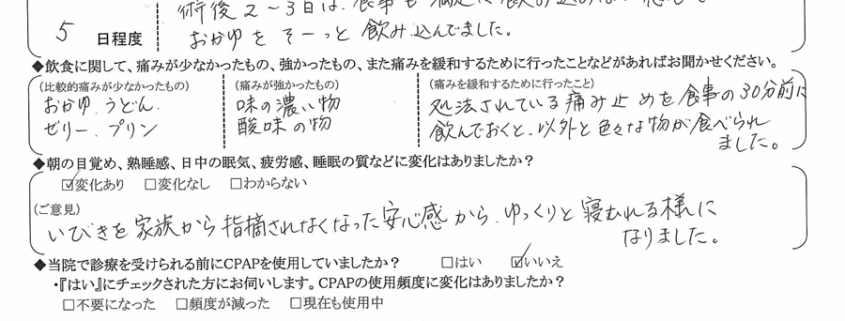 術後2~3日は、食事も満足に飲み込めない
5 日程度
おかゆをそーっと飲み込んでました。
◆飲食に関して、痛みが少なかったもの、強かったもの、また痛みを緩和するために行ったことなどがあればお聞かせください。
(比較的痛みが少なかったもの) (痛みが強かったもの) (痛みを緩和するために行ったこと)
おかゆ、うどん、 味の濃い物 処法されている痛み止めを食事の30分前に
ゼリー、プリン 酸味の物 飲んでおくと、以外と色々な物が食べられ
ました。
◆朝の目覚め、熟睡感、日中の眠気、疲労感、睡眠の質などに変化はありましたか?
☑変化あり □変化なし □わからない
(ご意見)
いびきを家族から指摘されなくなった安心感から、ゆっくりと寝むれる様に
なりました。
◆当院で診療を受けられる前にCPAPを使用していましたか? □はい ☑いいえ
・『はい』にチェックされた方にお伺いします。CPAPの使用頻度に変化はありましたか?
□不要になった □頻度が減った □現在も使用中